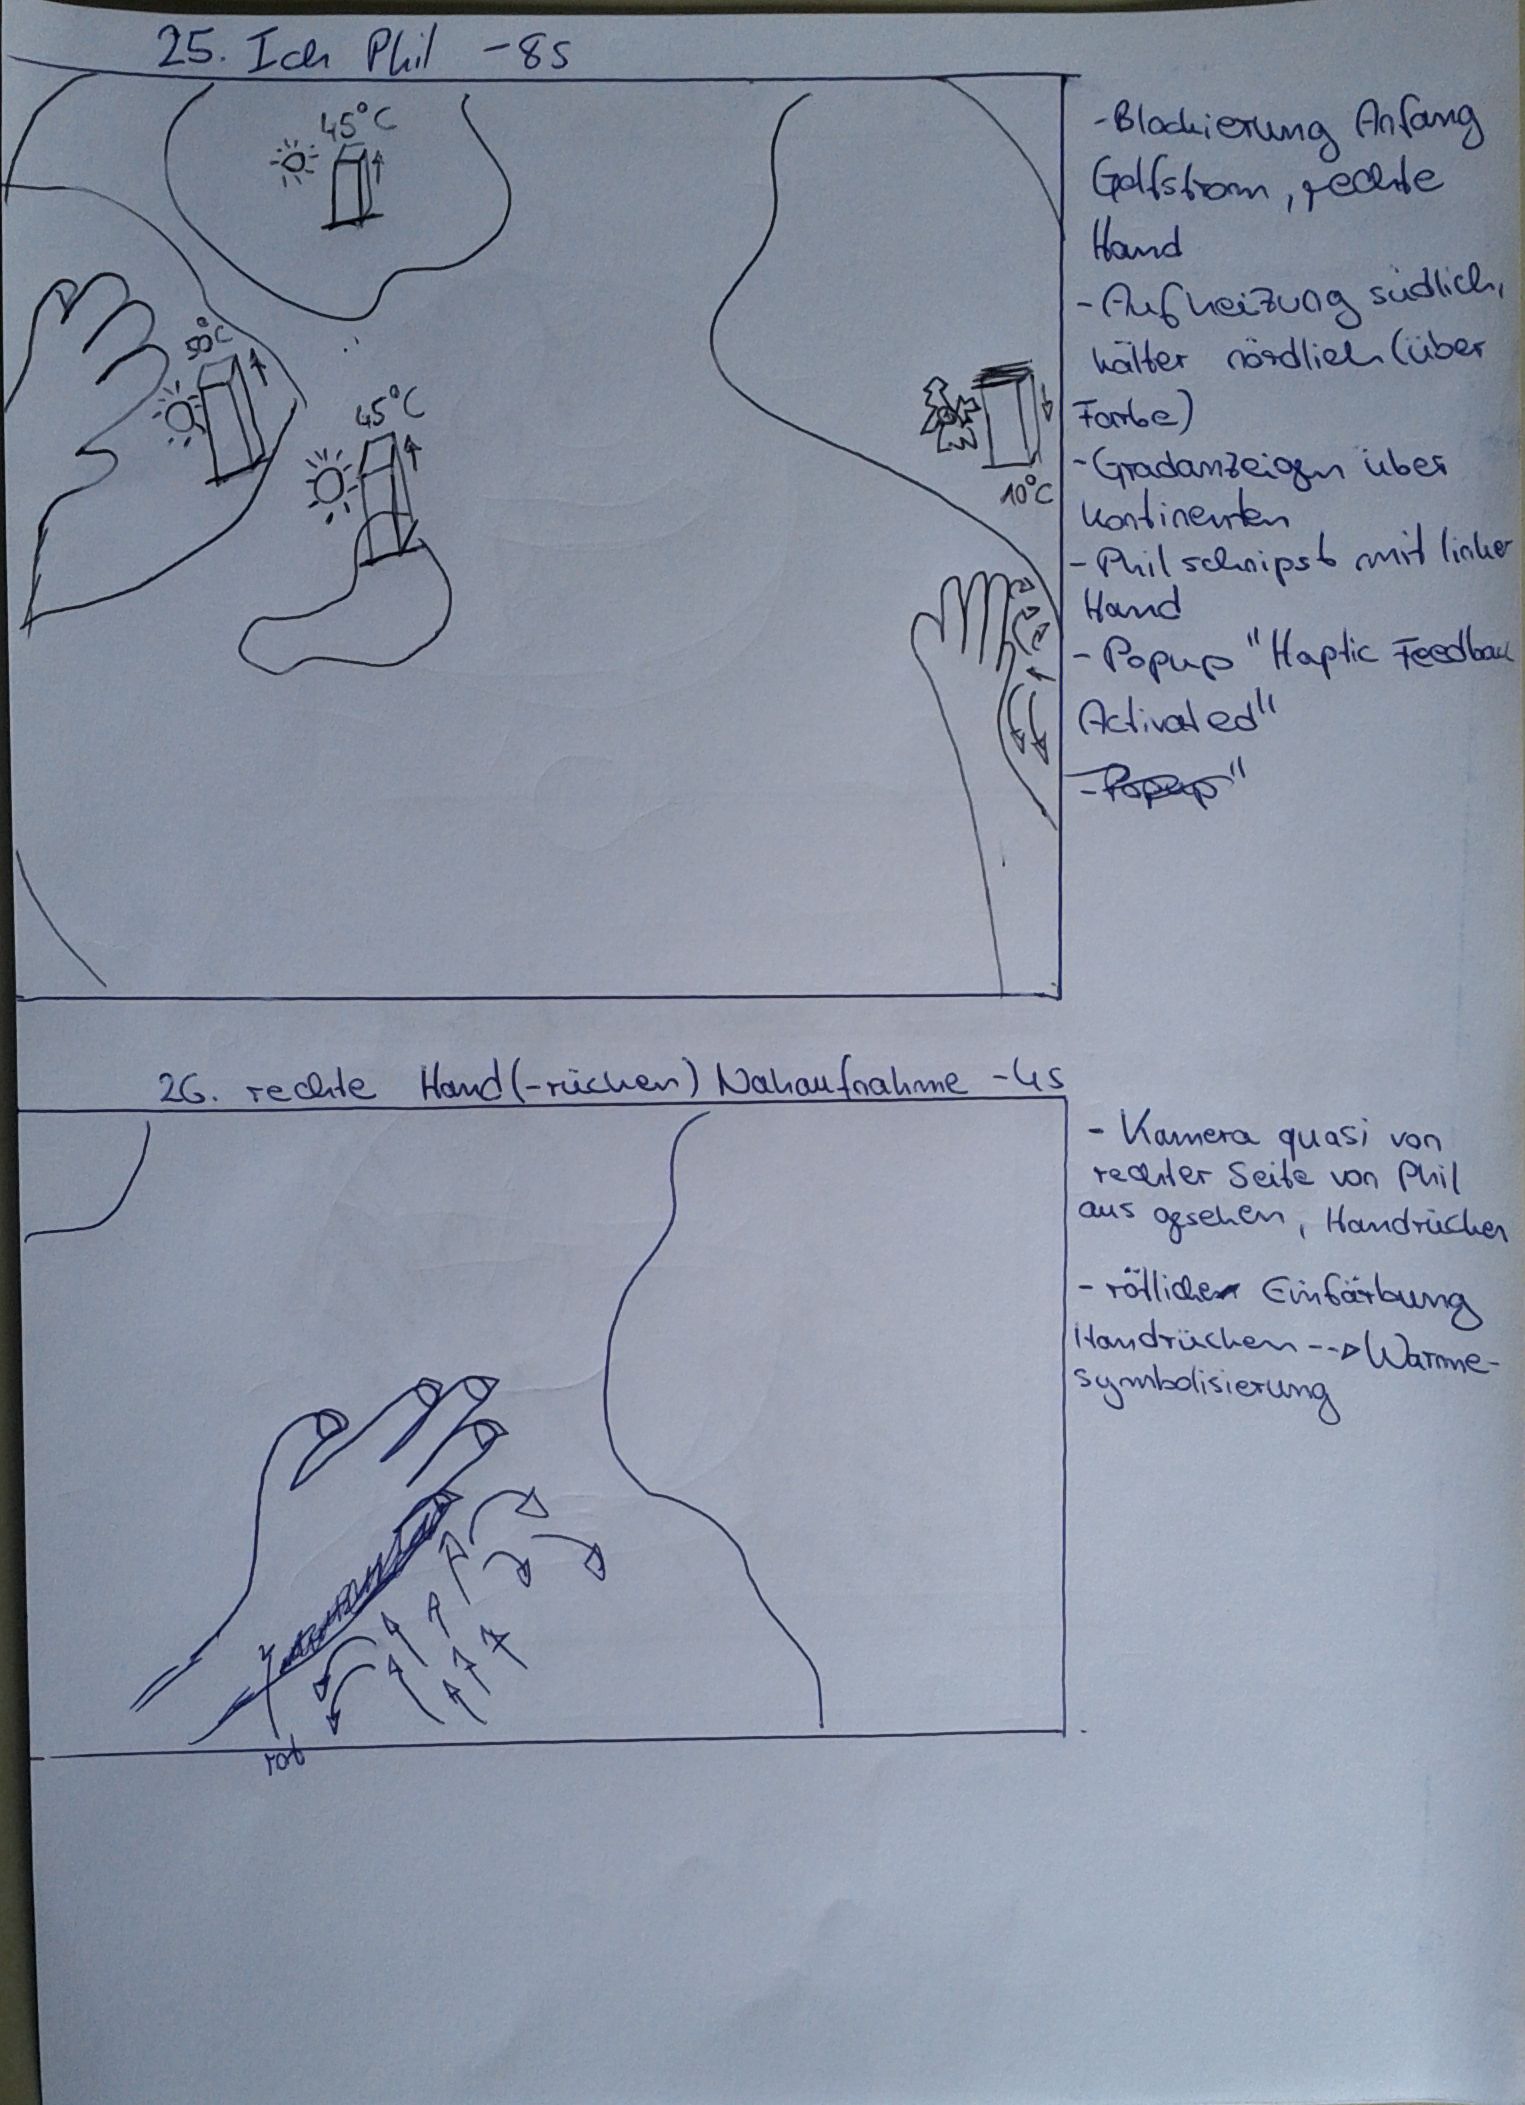 25. Ich Phil -8s
45°C
50°C
45°C
10°C
-Blockierung Anfang
Golfstrom, rechte
Hand
-Aufheizung südlich,
kälter nördlich (über
Farbe)
-Gradanzeigen über
Kontinenten
-Phil schnipst mit linker
Hand
-Popup "Haptic Feedback
Activated"
-Popup"
26. rechte Hand(-rücken) Nahaufnahme -4s
- Kamera quasi von
rechter Seite von Phil
aus gesehen, Handrücken
- rötliche Einfärbung
Handrücken --> Wärme-
symbolisierung
rot